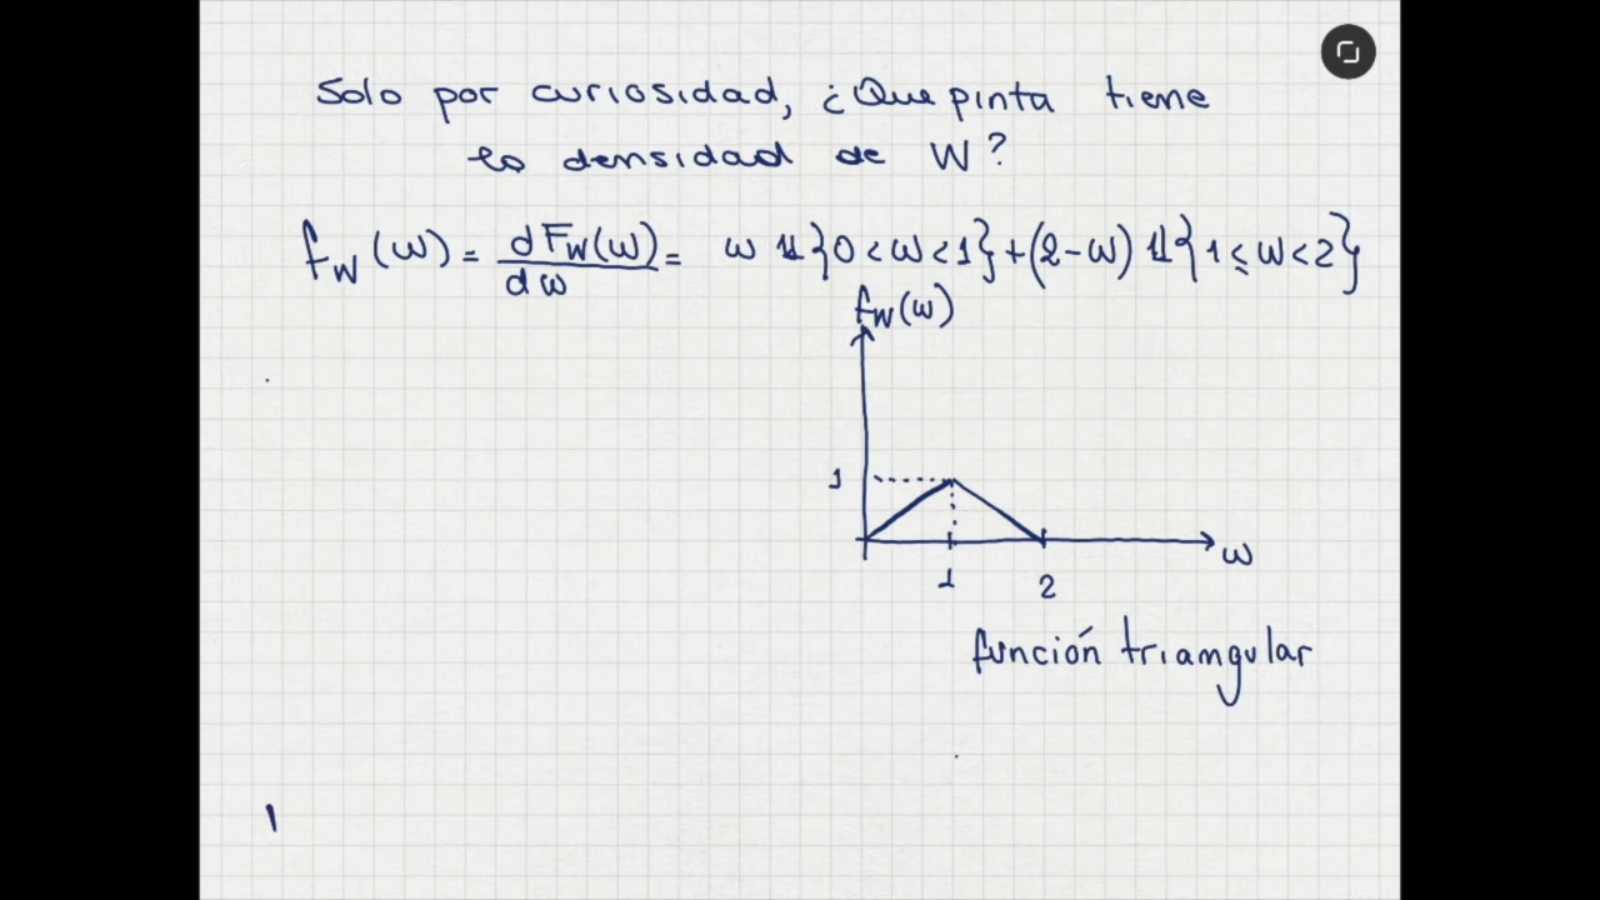 Solo por curiosidad, ¿Que pinta tiene
la densidad de W?
f_W(ω) = dF_W(ω)/dω = ω 𝟙{0<ω<1}+(2-ω) 𝟙{1≤ω<2}
f_W(ω)
1
ω
1 2
función triangular